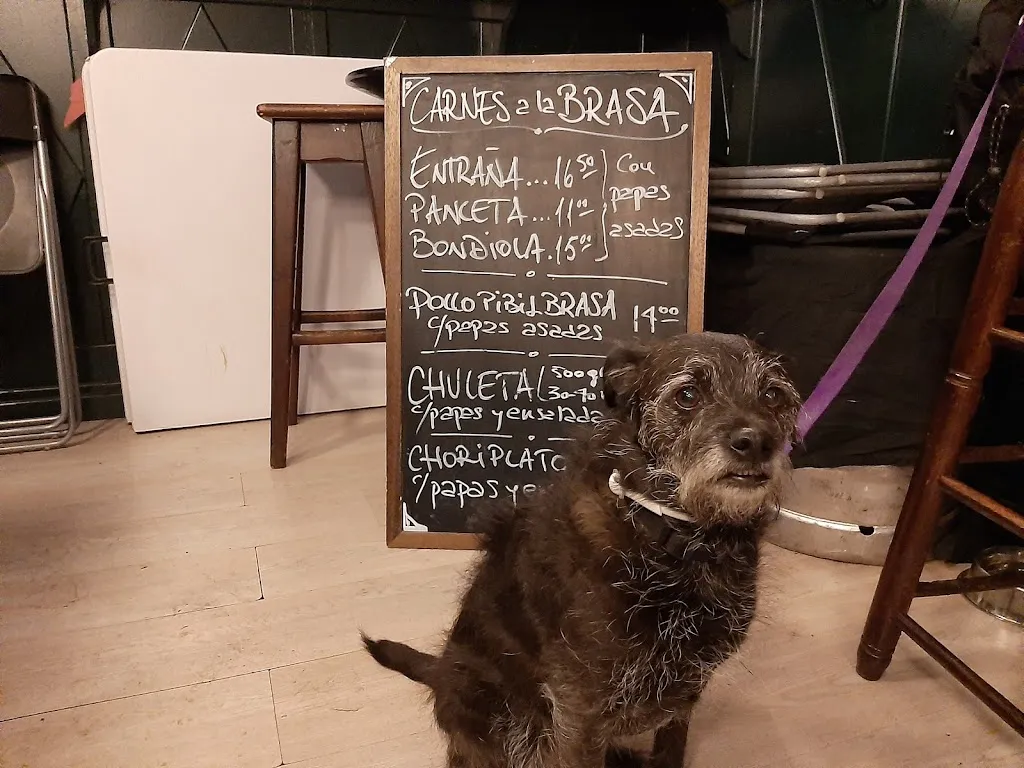 CARNES a la BRASA
ENTRAÑA... 16 50
PANCETA... 11 00
BONDIOLA. 15 00
Con
papas
asadas
POLLO PIBIL BRASA 14 00
c/papas asadas
CHULETA (500g
c/papas y ensalada
CHORIPLATO
c/papas y